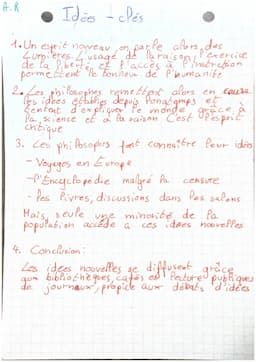 A.R
Idées - clés
1. Un esprit nouveau, on parle alors des
Lumières. L'usage de la raison, l'exercice
de la liberté et l'accès à l'instruction
permettent le bonheur de l'humanité
2. Les philosophes remettent alors en cause
les idées établies depuis longtemps et
tentent d'expliquer le monde grâce à
la science et à la raison C'est l'esprit
critique
3. Les philosophes font connaître leur idées
- Voyages en Europe
- l'Encyclopédie malgré la censure
- les livres, discussions dans les salons
Mais, seule une minorité de la
population accède a ces idées nouvelles
4. Conclusion:
Les idées nouvelles se diffusent grâce
aux bibliothèques, cafés et lecture publiques
de journaux, propice aux débats d'idées